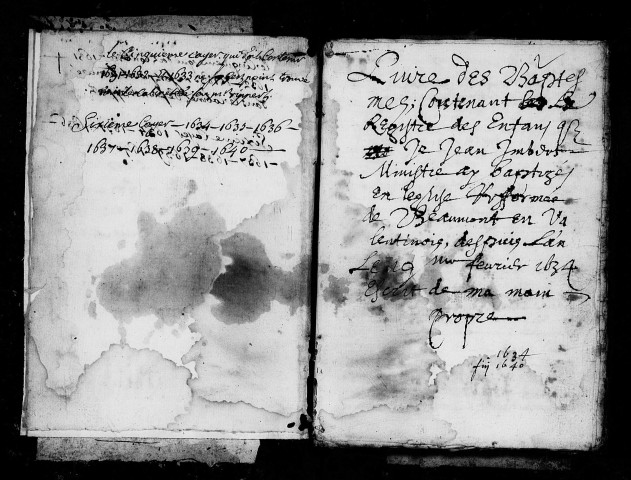 Le Cinquieme Cayer qui doit Contenir
1631 - 1632 - 1633
Sixieme Cayer - 1634 - 1635 - 1636 -
1637 - 1638 - 1639 - 1640 -
Livire des Baptes
mes, Contenant Le
Registre des Enfans q
Je Jean Imbert
Ministre ay baptizes
En leglise Refformee
de Beaumont en Va
lentinois, despuis Lan
Le 19 fevrier 1634
Escrit de ma main
propre
1634
fin 1640